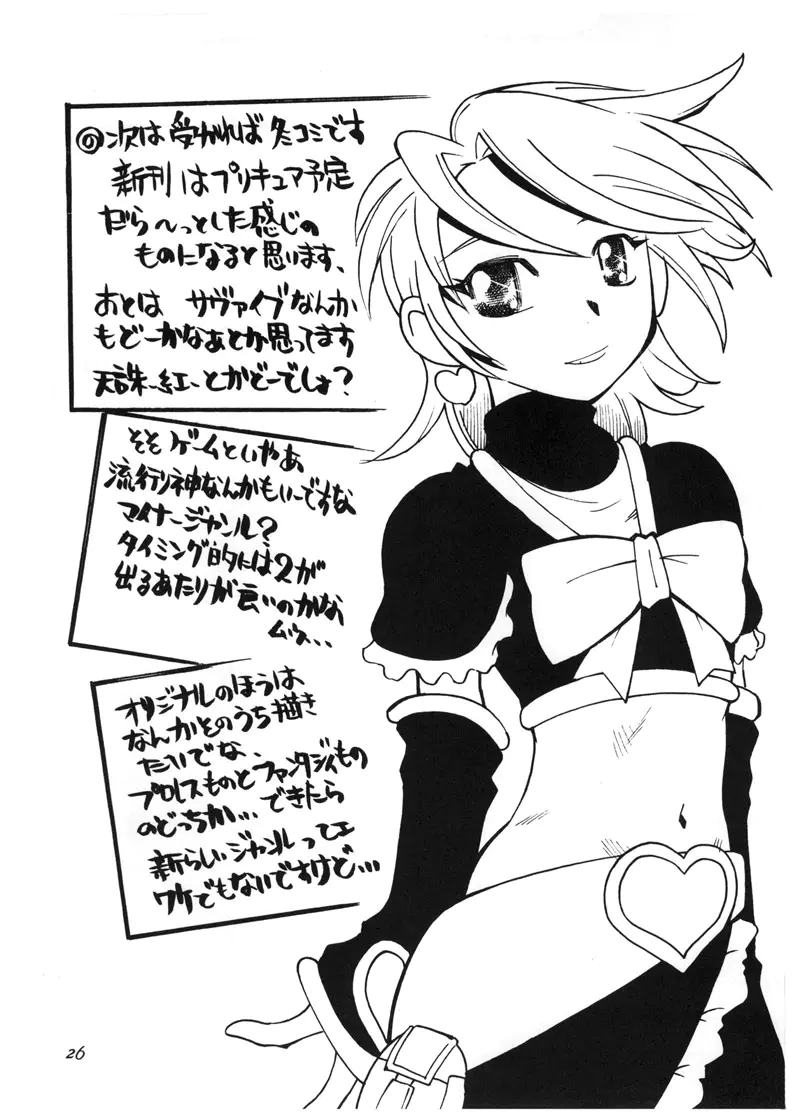 ◎次は受かれば冬コミです
新刊はプリキュア予定
だら〜っとした感じの
ものになると思います、
あとは サヴァイブなんか
もどーかなぁとか思ってます
天誅-紅-とかどーでしょ?
そそ ゲームといやあ
流行り神なんかもいーですな
マイナージャンル?
タイミング的には2が
出るあたりが良いのかな
ムゥ...
オリジナルのほうは
なんかそのうち描き
たいでな、
プロレスものとファンタジィもの
のどっちか... できたら
新らしいジャンルってェ
ワケでもないですけど...
26